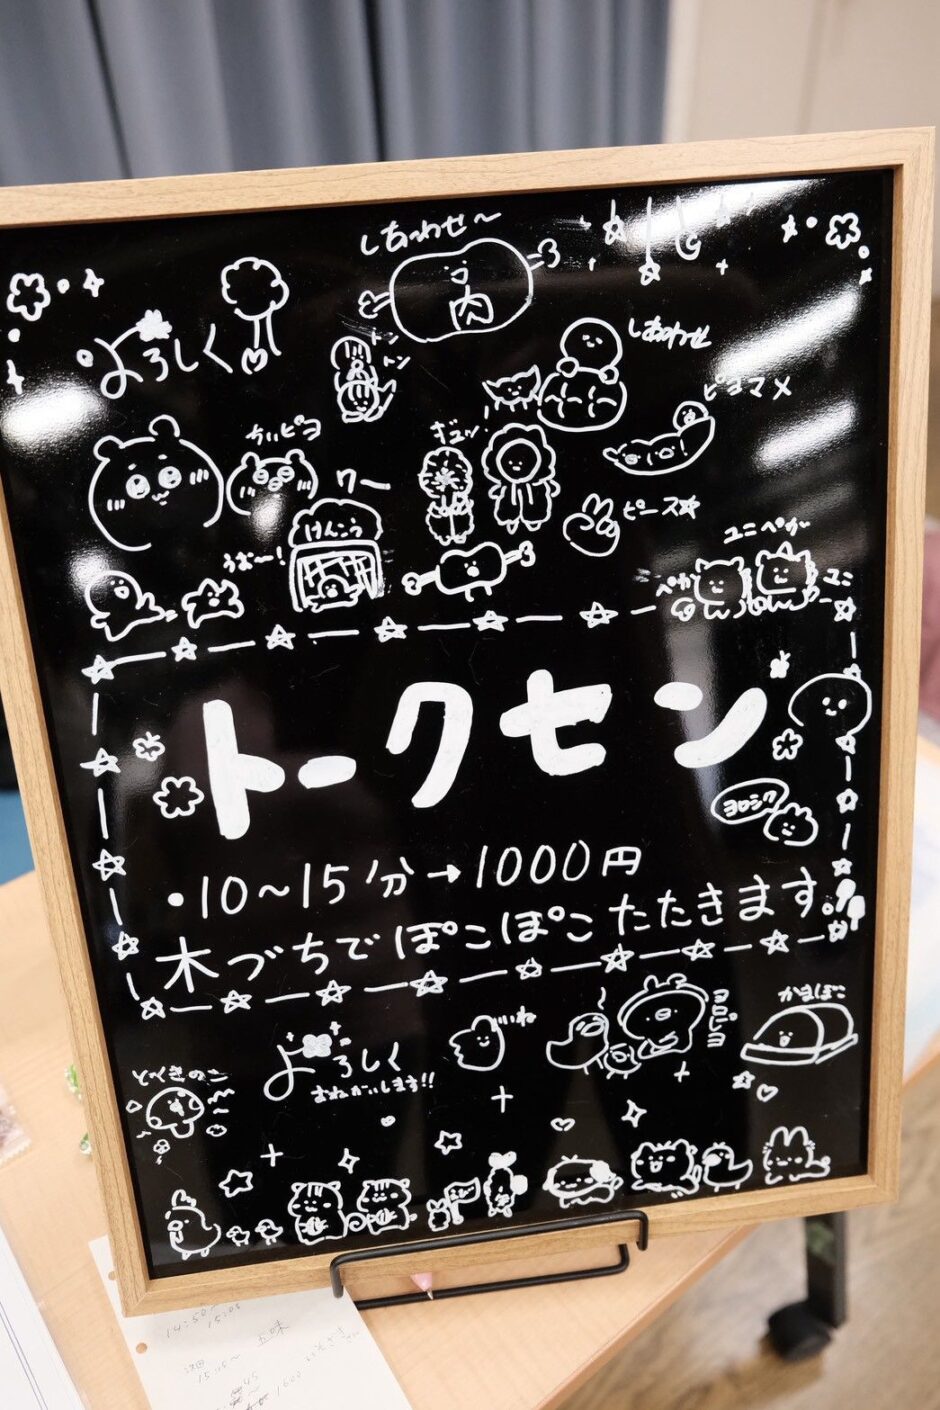 しあわせ〜
よろしく
トン
トン
しあわせ
ピヨマメ
ちいピヨ
ギュッ
ワー
けんこう
ピース☆
うお〜!
ユニペガ
ペガ
ユニ
トークセン
ヨロシク
・10〜15分→1000円
木づちでぽこぽこたたきます。
いいね
かまぼこ
よろしく
おねがいします!!
ヨロシク